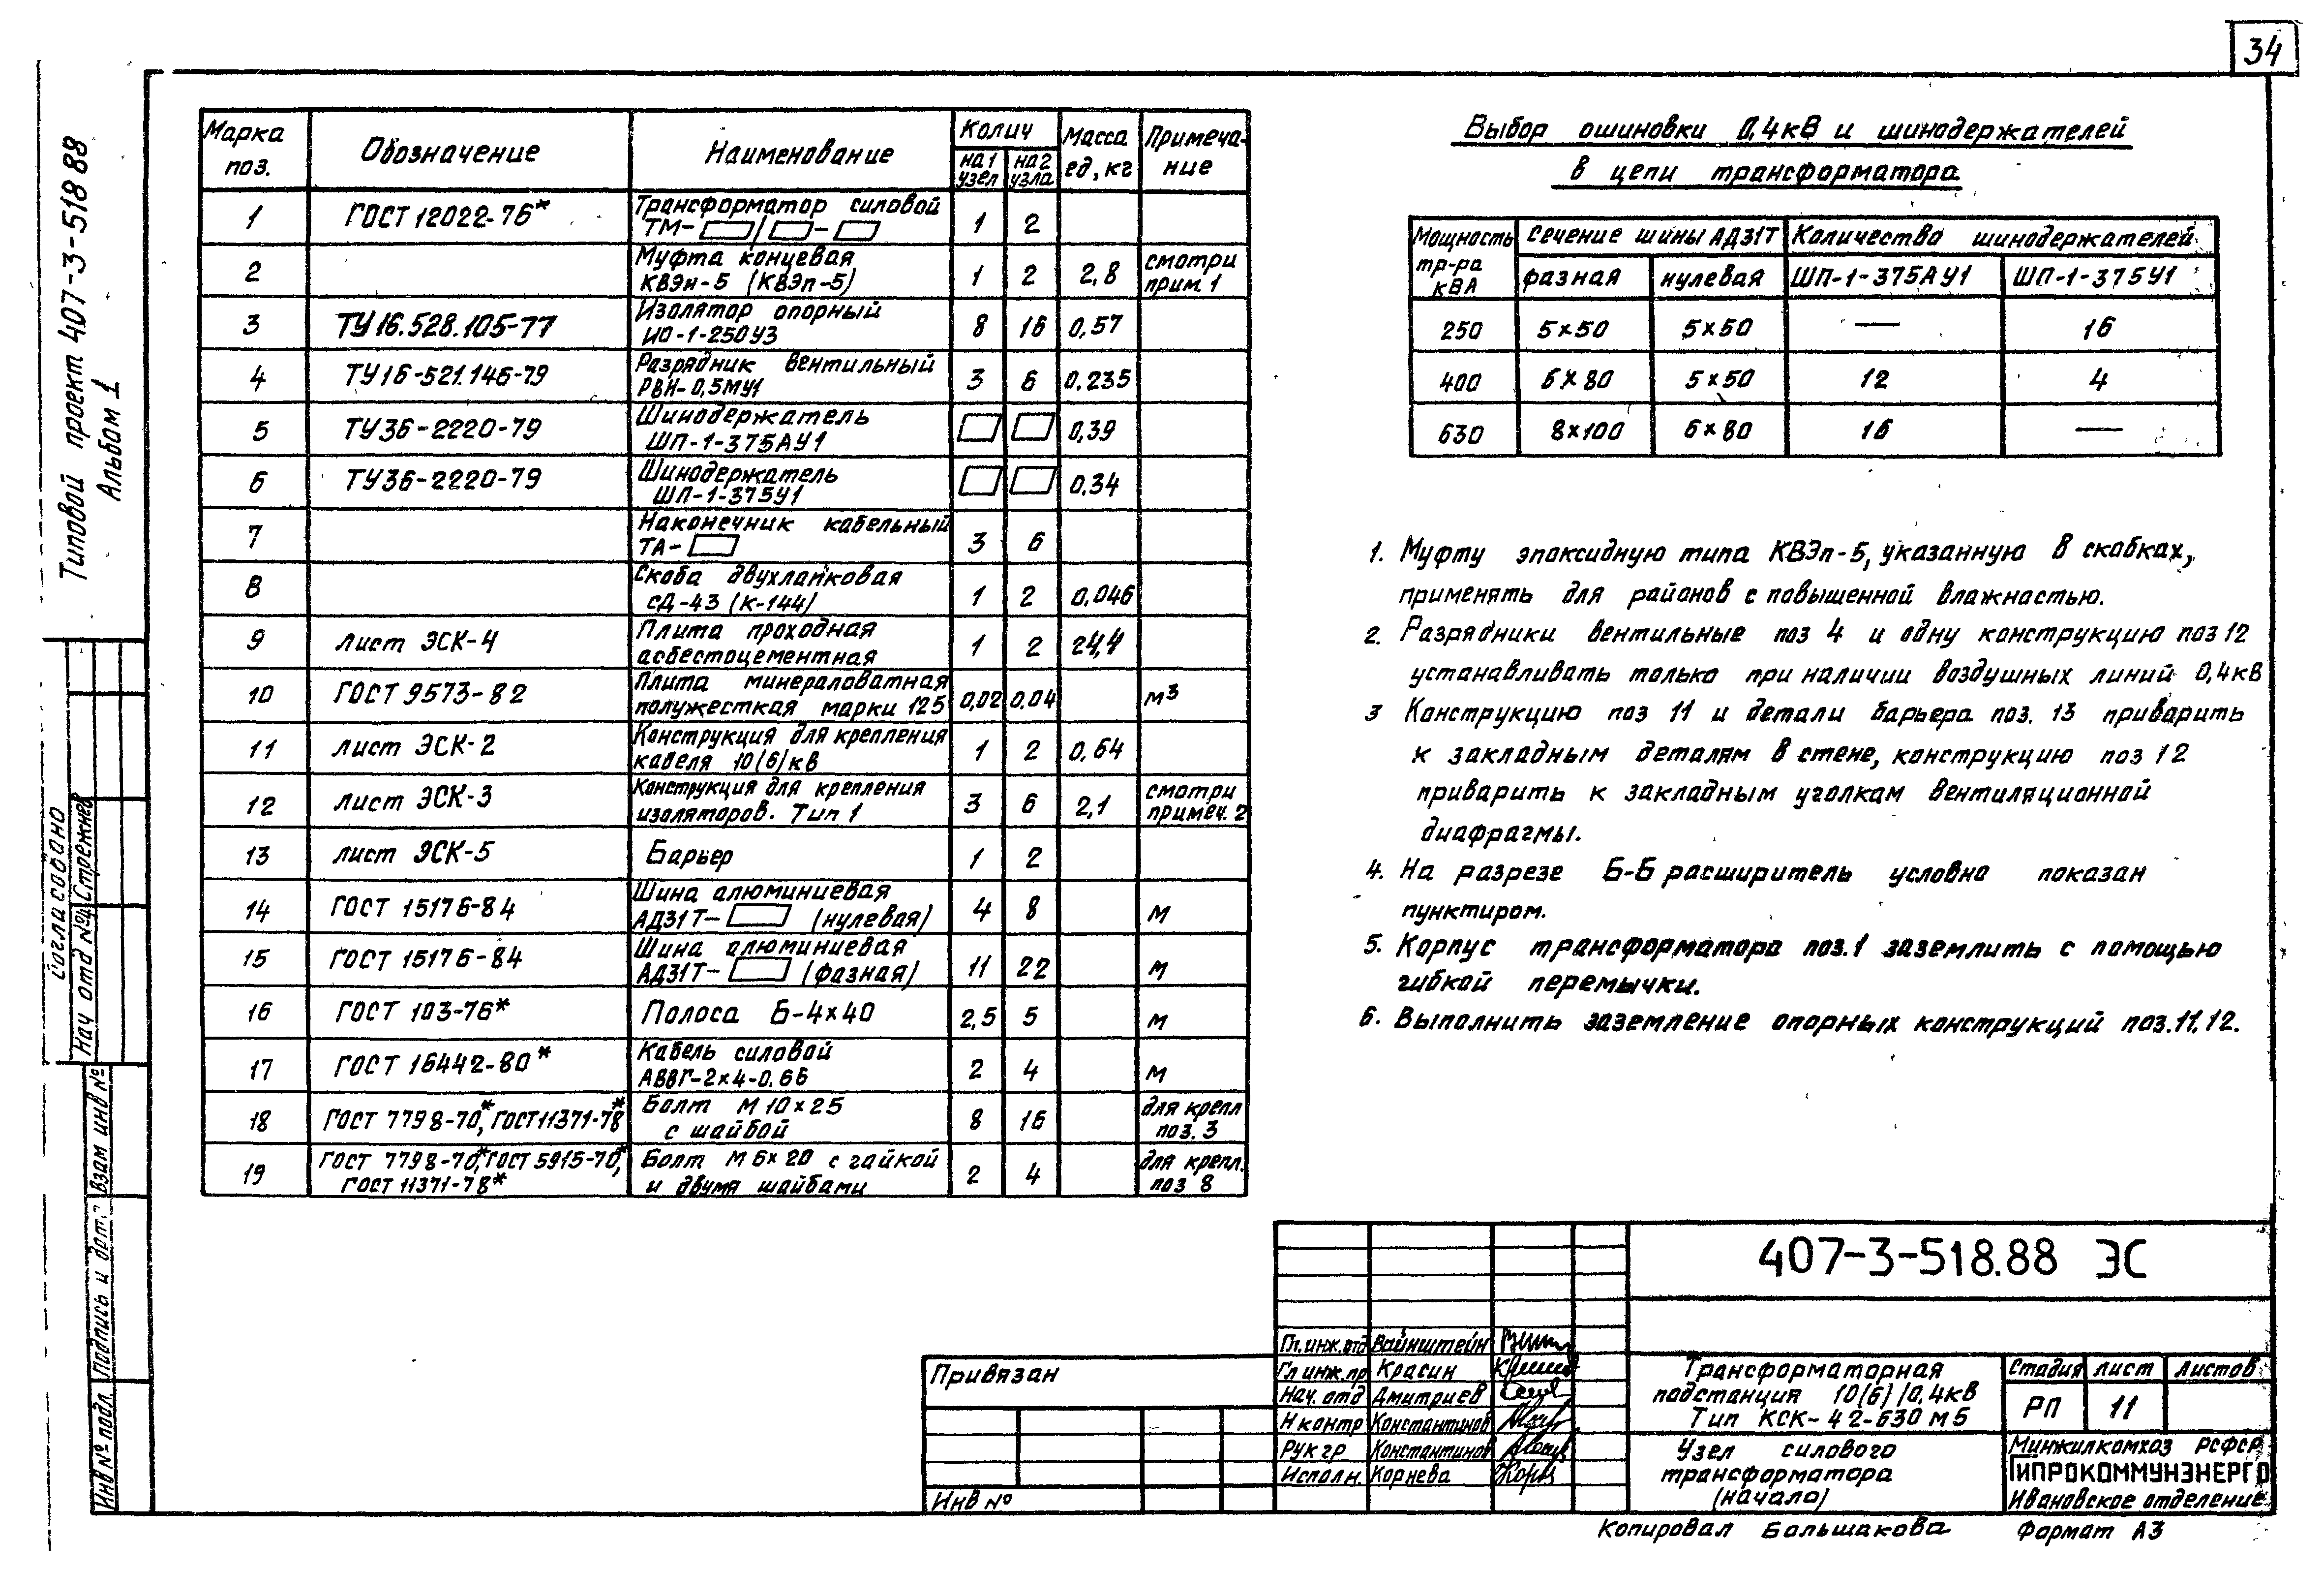 34
Типовой проект 407-3-518 88
Альбом 1
Марка поз.
Обозначение
Наименование
Колич
на 1 узел
на 2 узла
Масса ед, кг
Примеча-ние
1 ГОСТ 12022-76* Трансформатор силовой 1 2
ТМ-▭/▭-▭
2 Муфта концевая 1 2 2,8 смотри
КВЭн-5 (КВЭп-5) прим. 1
3 ТУ16.528.105-77 Изолятор опорный 8 16 0,57
ИО-1-250У3
4 ТУ16-521.146-79 Разрядник вентильный 3 6 0.235
РВН-0,5МУ1
5 ТУ36-2220-79 Шинодержатель ▭ ▭ 0,39
ШП-1-375АУ1
6 ТУ36-2220-79 Шинодержатель ▭ ▭ 0,34
ШП-1-375У1
7 Наконечник кабельный 3 6
ТА-▭
8 Скоба двухлапковая 1 2 0,046
СД-43 (К-144)
9 лист ЭСК-4 Плита проходная 1 2 24,4
асбестоцементная
10 ГОСТ 9573-82 Плита минераловатная 0,02 0,04 м³
полужесткая марки 125
11 лист ЭСК-2 Конструкция для крепления 1 2 0,64
кабеля 10(6)кв
12 лист ЭСК-3 Конструкция для крепления 3 6 2,1 смотри
изоляторов. Тип 1 примеч. 2
13 лист ЭСК-5 Барьер 1 2
14 ГОСТ 15176-84 Шина алюминиевая 4 8 м
АД31Т-▭ (нулевая)
15 ГОСТ 15176-84 Шина алюминиевая 11 22 м
АД31Т-▭ (фазная)
16 ГОСТ 103-76* Полоса Б-4×40 2,5 5 м
17 ГОСТ 16442-80* Кабель силовой 2 4 м
АВВГ-2×4-0.66
18 ГОСТ 7798-70*, ГОСТ 11371-78* Болт М10×25 8 16 для крепл
с шайбой поз. 3
19 ГОСТ 7798-70*, ГОСТ 5915-70*, Болт М6×20 с гайкой 2 4 для крепл.
ГОСТ 11371-78* и двумя шайбами поз 8
Выбор ошиновки 0,4кВ и шинодержателей
в цепи трансформатора
Мощность тр-ра кВА
Сечение шины АД31Т
Количество шинодержателей
фазная нулевая ШП-1-375АУ1 ШП-1-375У1
250 5×50 5×50 — 16
400 6×80 5×50 12 4
630 8×100 6×80 16 —
1. Муфту эпоксидную типа КВЭп-5, указанную в скобках,
применять для районов с повышенной влажностью.
2. Разрядники вентильные поз 4 и одну конструкцию поз 12
устанавливать только при наличии воздушных линий 0,4кВ
3 Конструкцию поз 11 и детали барьера поз. 13 приварить
к закладным деталям в стене, конструкцию поз 12
приварить к закладным уголкам вентиляционной
диафрагмы.
4. На разрезе Б-Б расширитель условно показан
пунктиром.
5. Корпус трансформатора поз.1 заземлить с помощью
гибкой перемычки.
6. Выполнить заземление опорных конструкций поз.11,12.
согласовано
Нач отд №4 Стрежнев
Взам инв №
Подпись и дат.
Инв № подл.
Привязан
Инв №
407-3-518.88 ЭС
Гл.инж.отд Вайнштейн
Гл инж.пр Красин
Нач. отд Дмитриев
Н контр Константинов
Рук гр Константинов
Исполн. Корнева
Трансформаторная
подстанция 10(6)/0,4кВ
Тип КСК-42-630 М5
Узел силового
трансформатора
(начало)
Стадия лист листов
РП 11
Минжилкомхоз РСФСР
ГИПРОКОММУНЭНЕРГО
Ивановское отделение
Копировал Большакова Формат А3